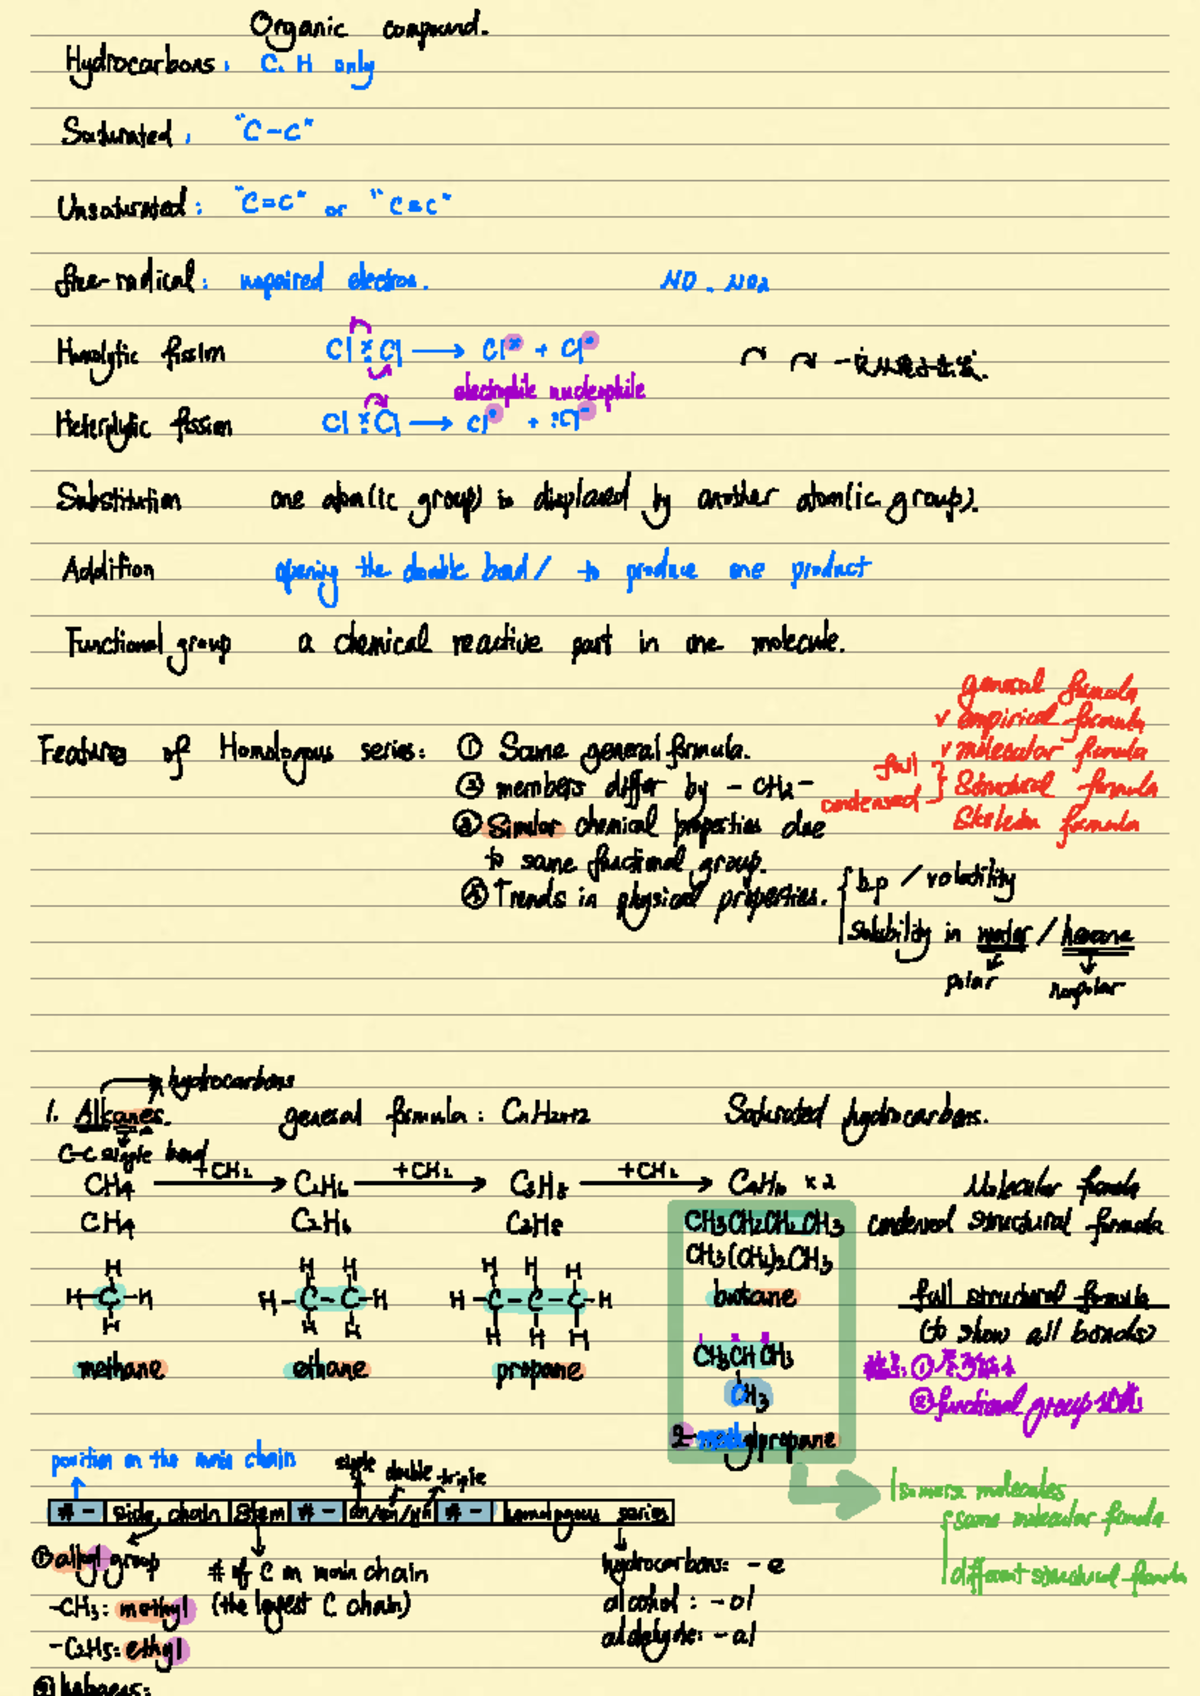 Organic compound.
Hydrocarbons: C. H only
Saturated: "C-C"
Unsaturated: "C=C" or "C≡C"
free-radical: unpaired electron. NO. NO2
Homolytic fission Cl Cl → Cl + Cl
electrophile nucleophile
Heterlytic fission Cl Cl → Cl + :Cl
Substitution one atom(ic group) is displaced by another atom(ic group).
Addition opening the double bond / to produce one product
Functional group a chemical reactive part in one molecule.
general formula
✓ empirical formula
Features of Homologous series: ① Same general formula. ✓ molecular formula
② members differ by -CH2- full condensed } Structural formula
③ Similar chemical properties due Skeleton formula
to same functional group.
④ Trends in physical properties. { bp / volatility
Solubility in water / hexane
polar nonpolar
hydrocarbons
1. Alkanes. general formula: CnH2n+2 Saturated hydrocarbons.
C-C single bond
CH4 +CH2 → C2H6 +CH2 → C3H8 +CH2 → C4H10 x2 Molecular formula
CH4 C2H6 C3H8 CH3CH2CH2CH3 condensed structural formula
CH3(CH2)2CH3
H H H H H H
H-C-H H-C-C-H H-C-C-C-H butane full structural formula
H H H H H H (to show all bonds)
methane ethane propane CH3CHCH3
CH3 ② functional group
2-methylpropane
position on the main chain single double triple
Isomers molecules
# - side chain Stem # - an/en/yn # - homologous series same molecular formula
① alkyl group # of C in main chain hydrocarbons: -e different structural formula
-CH3: methyl (the longest C chain) alcohol: -ol
-C2H5: ethyl aldehyde: -al